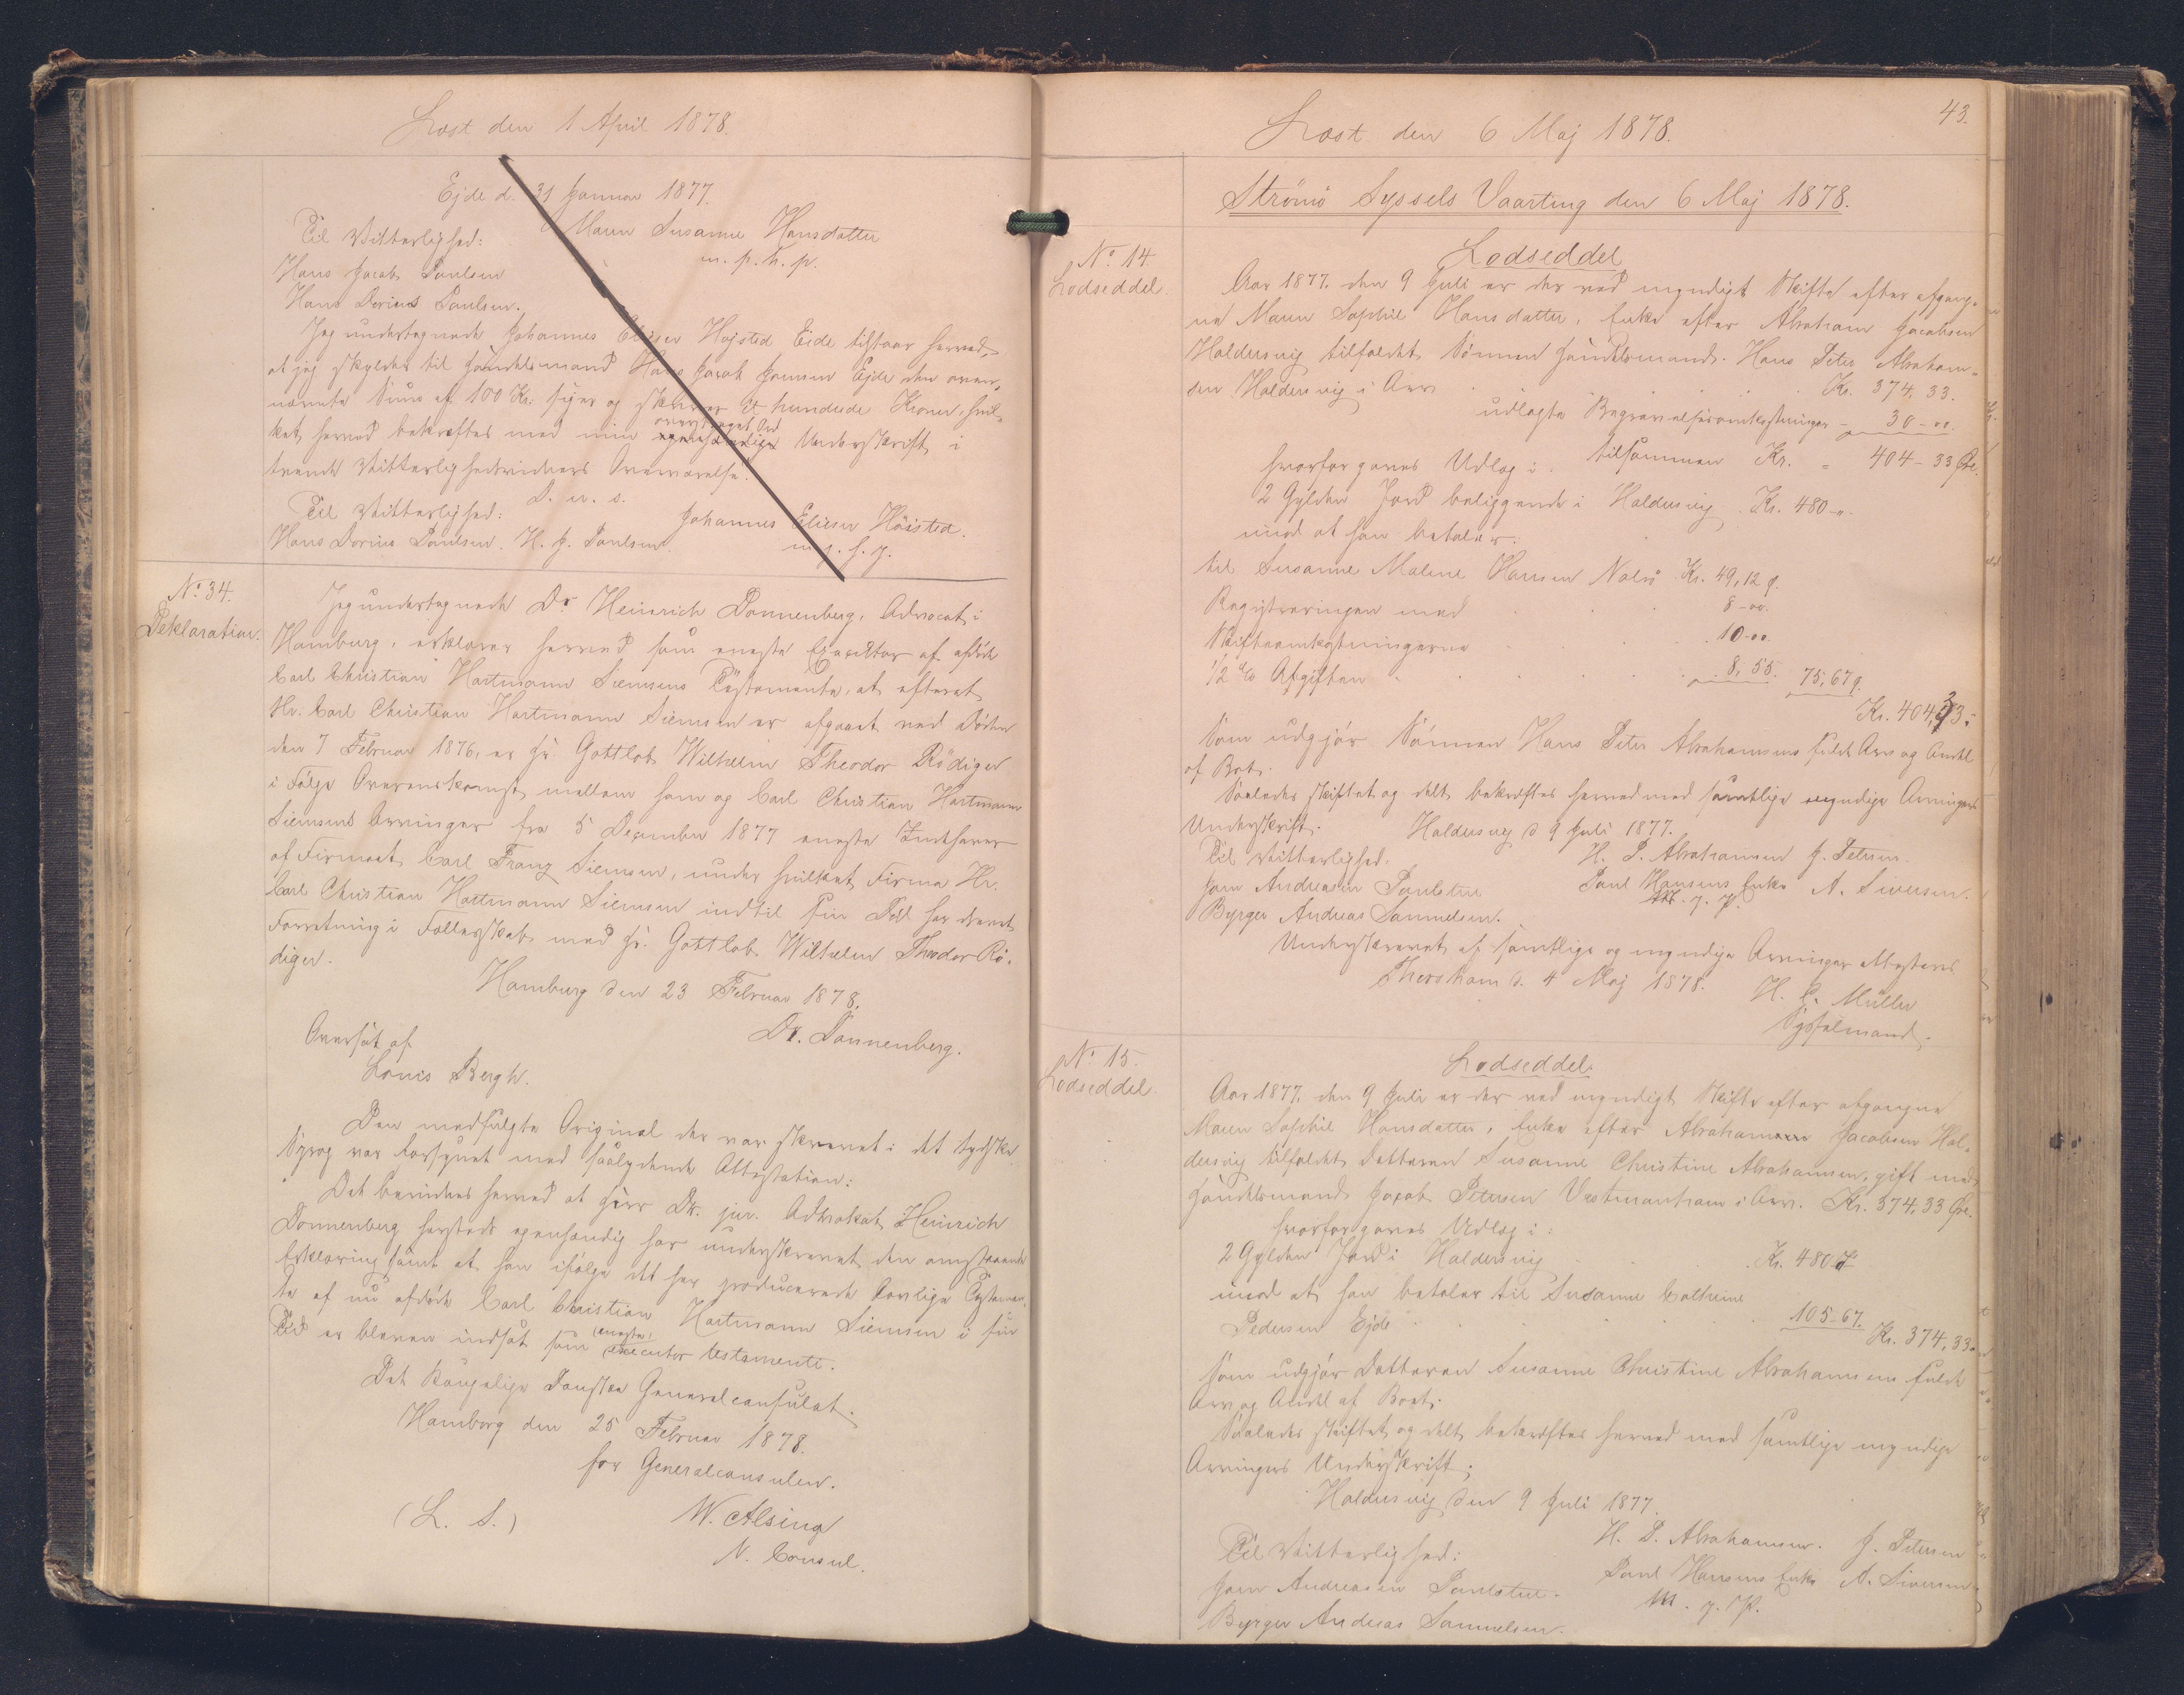 Læst den 1 April 1878.
Ejde d. 31 Januar 1877.
Til Vitterlighed: Maren Susanne Hansdatter
m. p. h. p.
Hans Jacob Poulsen
Hans Dorius Poulsen.
Jeg undertegnede Johannes Elieser Højsted Eide tilstaar herved,
at jeg skylder til Handelsmand Hans Jacob Joensen Ejde den oven-
nævnte Sum af 100 Kr. siger og skriver Et hundrede Kroner, hvil-
ket herved bekræftes med min egenhændige Underskrift i
overstreget Ord
tvende Vitterlighedsvidners Overværelse.
D. u. s.
Til Vitterlighed: Johannes Elieser Høisted.
Hans Dorius Poulsen. H. J. Poulsen. m. f. p.
No. 34.
Deklaration.
Jeg undertegnede Dr. Heinrich Donnenberg, Advocat i
Hamburg, erklærer herved som eneste Executor af afdøde
Carl Christian Hartmann Siemsens Testamente, at efterat
Hr. Carl Christian Hartmann Siemsen er afgaaet ved Døden
den 7 Februar 1876, er Hr. Gottlob Wilhelm Theodor Rödiger
i Følge Overenskomst mellem ham og Carl Christian Hartmann
Siemsens Arvinger fra 5 December 1877 eneste Indehaver
af Firmaet Carl Franz Siemsen, under hvilket Firma Hr.
Carl Christian Hartmann Siemsen indtil sin Død har drevet
Forretning i Fællesskab med Hr. Gottlob Wilhelm Theodor Rö-
diger.
Hamburg den 23 Februar 1878.
Dr. Donnenberg.
Oversat af
Louis Bergh.
Den medfulgte Original der var skrevet i det tydske
Sprog var forsynet med saalydende Attestation:
Det bevidnes herved at Herr Dr. jur. Advokat Heinrich
Donnenberg hersteds egenhændig har underskrevet den omstaaende
Erklæring samt at han ifølge det her producerede lovlige Testamen-
te af nu afdøde Carl Christian Hartmann Siemsen i sin
Tid er bleven indsat som eneste executor testamenti.
Det Kongelige Danske Generalconsulat.
Hamborg den 25 Februar 1878.
for Generalconsulen.
(L. S.) W. Alsing
V. Consul.
43.
Læst den 6 Maj 1878.
Strömö Syssels Vaarting den 6 Maj 1878.
No. 14
Lodseddel.
Lodseddel
Aar 1877. den 9 Juli er der ved myndigt Skifte efter afgang-
ne Maren Sophie Hansdatter, Enke efter Abraham Jacobsen
Haldersvig tilfaldet Sønnen Handelsmand. Hans Peter Abraham-
sen Haldersvig i Arv . . . . Kr. 374, 33.
udlagte Begravelsesomkostninger - 30-00.
tilsammen Kr. - 404-33 Øre.
hvorfor gaves Udlæg i:
2 Gylden Jord beliggende i Haldersvig . Kr. 480-"-
imod at han betaler:
til Susanne Malene Hansen Nolsö . Kr. 49,12 Ø.
Registreringen med . . . 8-00.
Skifteomkostningerne . . . 10-00.
1/2 % Afgiften . . . . 8, 55. 75,67 Ø.
Kr. 404,33.
Som udgjør Sønnen Hans Peter Abrahamsens fulde Arv og Andel
af Boet.
Saaledes skiftet og delt bekræftes herved med samtlige myndige Arvingers
Underskrift.
Haldersvig d 9 Juli 1877.
Til Vitterlighed. H. P. Abrahamsen J. Petersen.
Joen Andreasen Poulstue Poul Hansens Enke A. Siversen.
Byrger Andreas Samuelsen.
Underskrevet af samtlige og myndige Arvinger attesteres
Thorshavn d. 4 Maj 1878. H. C. Müller
Sysselmand.
No. 15.
Lodseddel.
Lodseddel.
Aar 1877. den 9 Juli er der ved myndigt Skifte efter afgangne
Maren Sophie Hansdatter, Enke efter Abraham Jacobsen Hal-
dersvig tilfaldet Datteren Susanne Christine Abrahamsen, gift med
Handelsmand Jacob Petersen Vestmanhavn i Arv. Kr. 374,33 Øre.
hvorfor gaves Udlæg i:
2 Gylden Jord i Haldersvig . . Kr. 480
imod at han betaler til Susanne Cathrine
Pedersen Ejde . . . . . 105-67. Kr. 374,33.
Som udgjør Datteren Susanne Christine Abrahamsens fulde
Arv og Andel af Boet.
Saaledes skiftet og delt bekræftes herved med samtlige myndige
Arvingers Underskrift;
Haldersvig den 9 Juli 1877.
Til Vitterlighed: H. P. Abrahamsen. J. Petersen
Joen Andreasen Poulstue. Poul Hansens Enke A. Siversen.
Byrger Andreas Samuelsen.